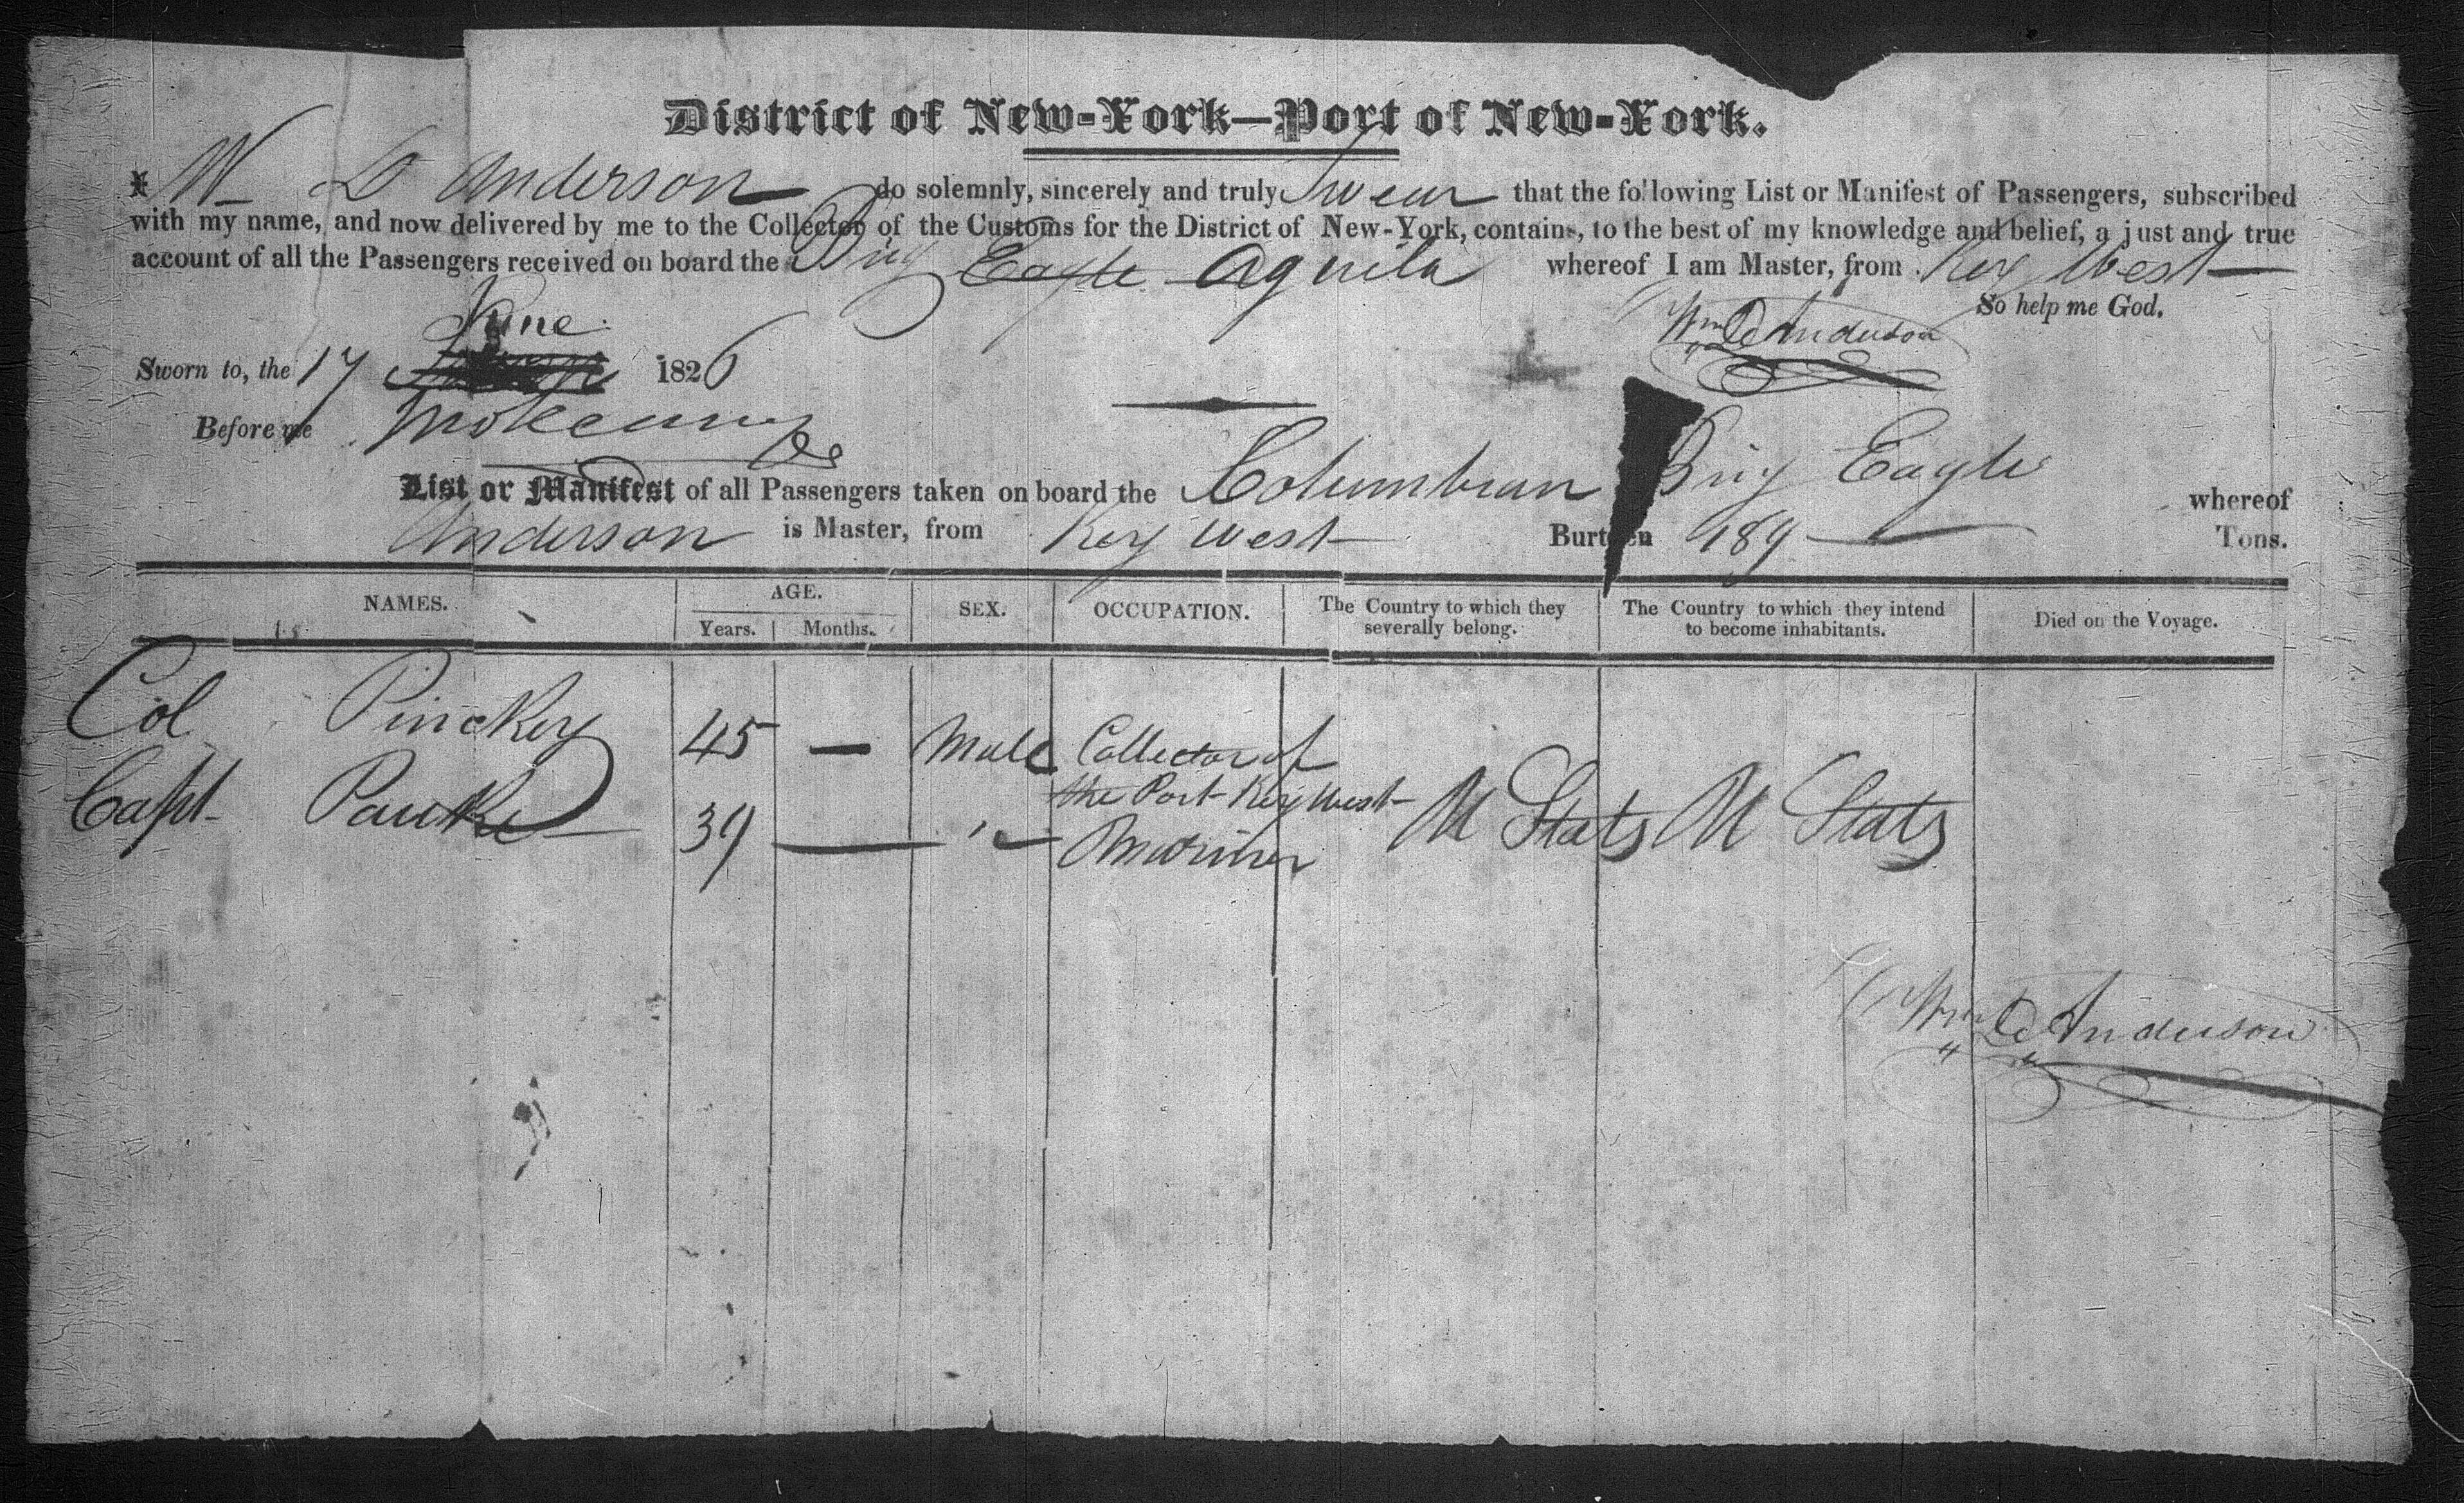 District of New-York—Port of New-York.
I W D Anderson do solemnly, sincerely and truly Swear that the following List or Manifest of Passengers, subscribed
with my name, and now delivered by me to the Collector of the Customs for the District of New-York, contains, to the best of my knowledge and belief, a just and true
account of all the Passengers received on board the Brig Eagle Aguila whereof I am Master, from Key West
So help me God.
June
Wm D Anderson
Sworn to, the 17 1826
Before me
List or Manifest of all Passengers taken on board the Columbian Brig Eagle whereof
Anderson is Master, from Key West Burthen 189 Tons.
NAMES. AGE. Years. Months. SEX. OCCUPATION. The Country to which they severally belong. The Country to which they intend to become inhabitants. Died on the Voyage.
Col Pinckey 45 — Male Collector of
the Port Key West
Capt 39 — " Mariner U States U States
Wm D Anderson